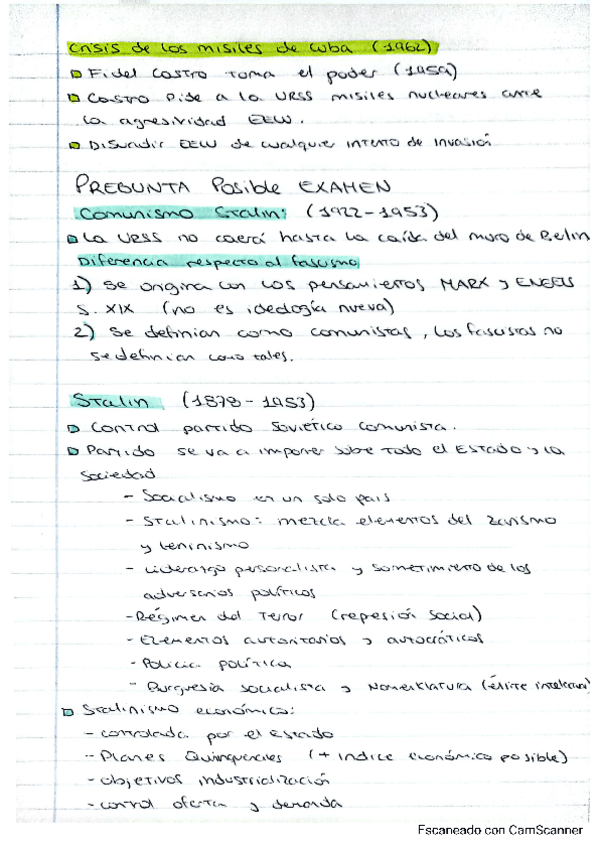 Crisis de los misiles de Cuba (1962)
Fidel Castro toma el poder (1959)
Castro pide a la URSS misiles nucleares ante
la agresividad EEUU.
Disuadir EEUU de cualquier intento de invasión
PREGUNTA Posible EXAMEN
Comunismo Stalin: (1922-1953)
La URSS no caerá hasta la caída del muro de Berlin
Diferencia respecto al fascismo
1) Se origina con los pensamientos MARX y ENGELS
S. XIX (no es ideología nueva)
2) Se definian como comunistas, los fascistas no
se definian como tales.
Stalin (1878-1953)
Control partido Soviético comunista.
Partido se va a imponer sobre todo el Estado y la
sociedad
- Socialismo en un solo pais
- Stalinismo: mezcla elementos del zarismo
y leninismo
- Liderazgo personalista y sometimiento de los
adversarios políticos
- Régimen del Terror (represión social)
- Elementos autoritarios y autocráticos
- Policia política
- Burguesia socialista y Nomenklatura (élite intelectual)
Stalinismo económico:
- controlada por el Estado
- Planes Quinquenales (+ indice económico posible)
- objetivos industrialización
- control oferta y demanda
Escaneado con CamScanner